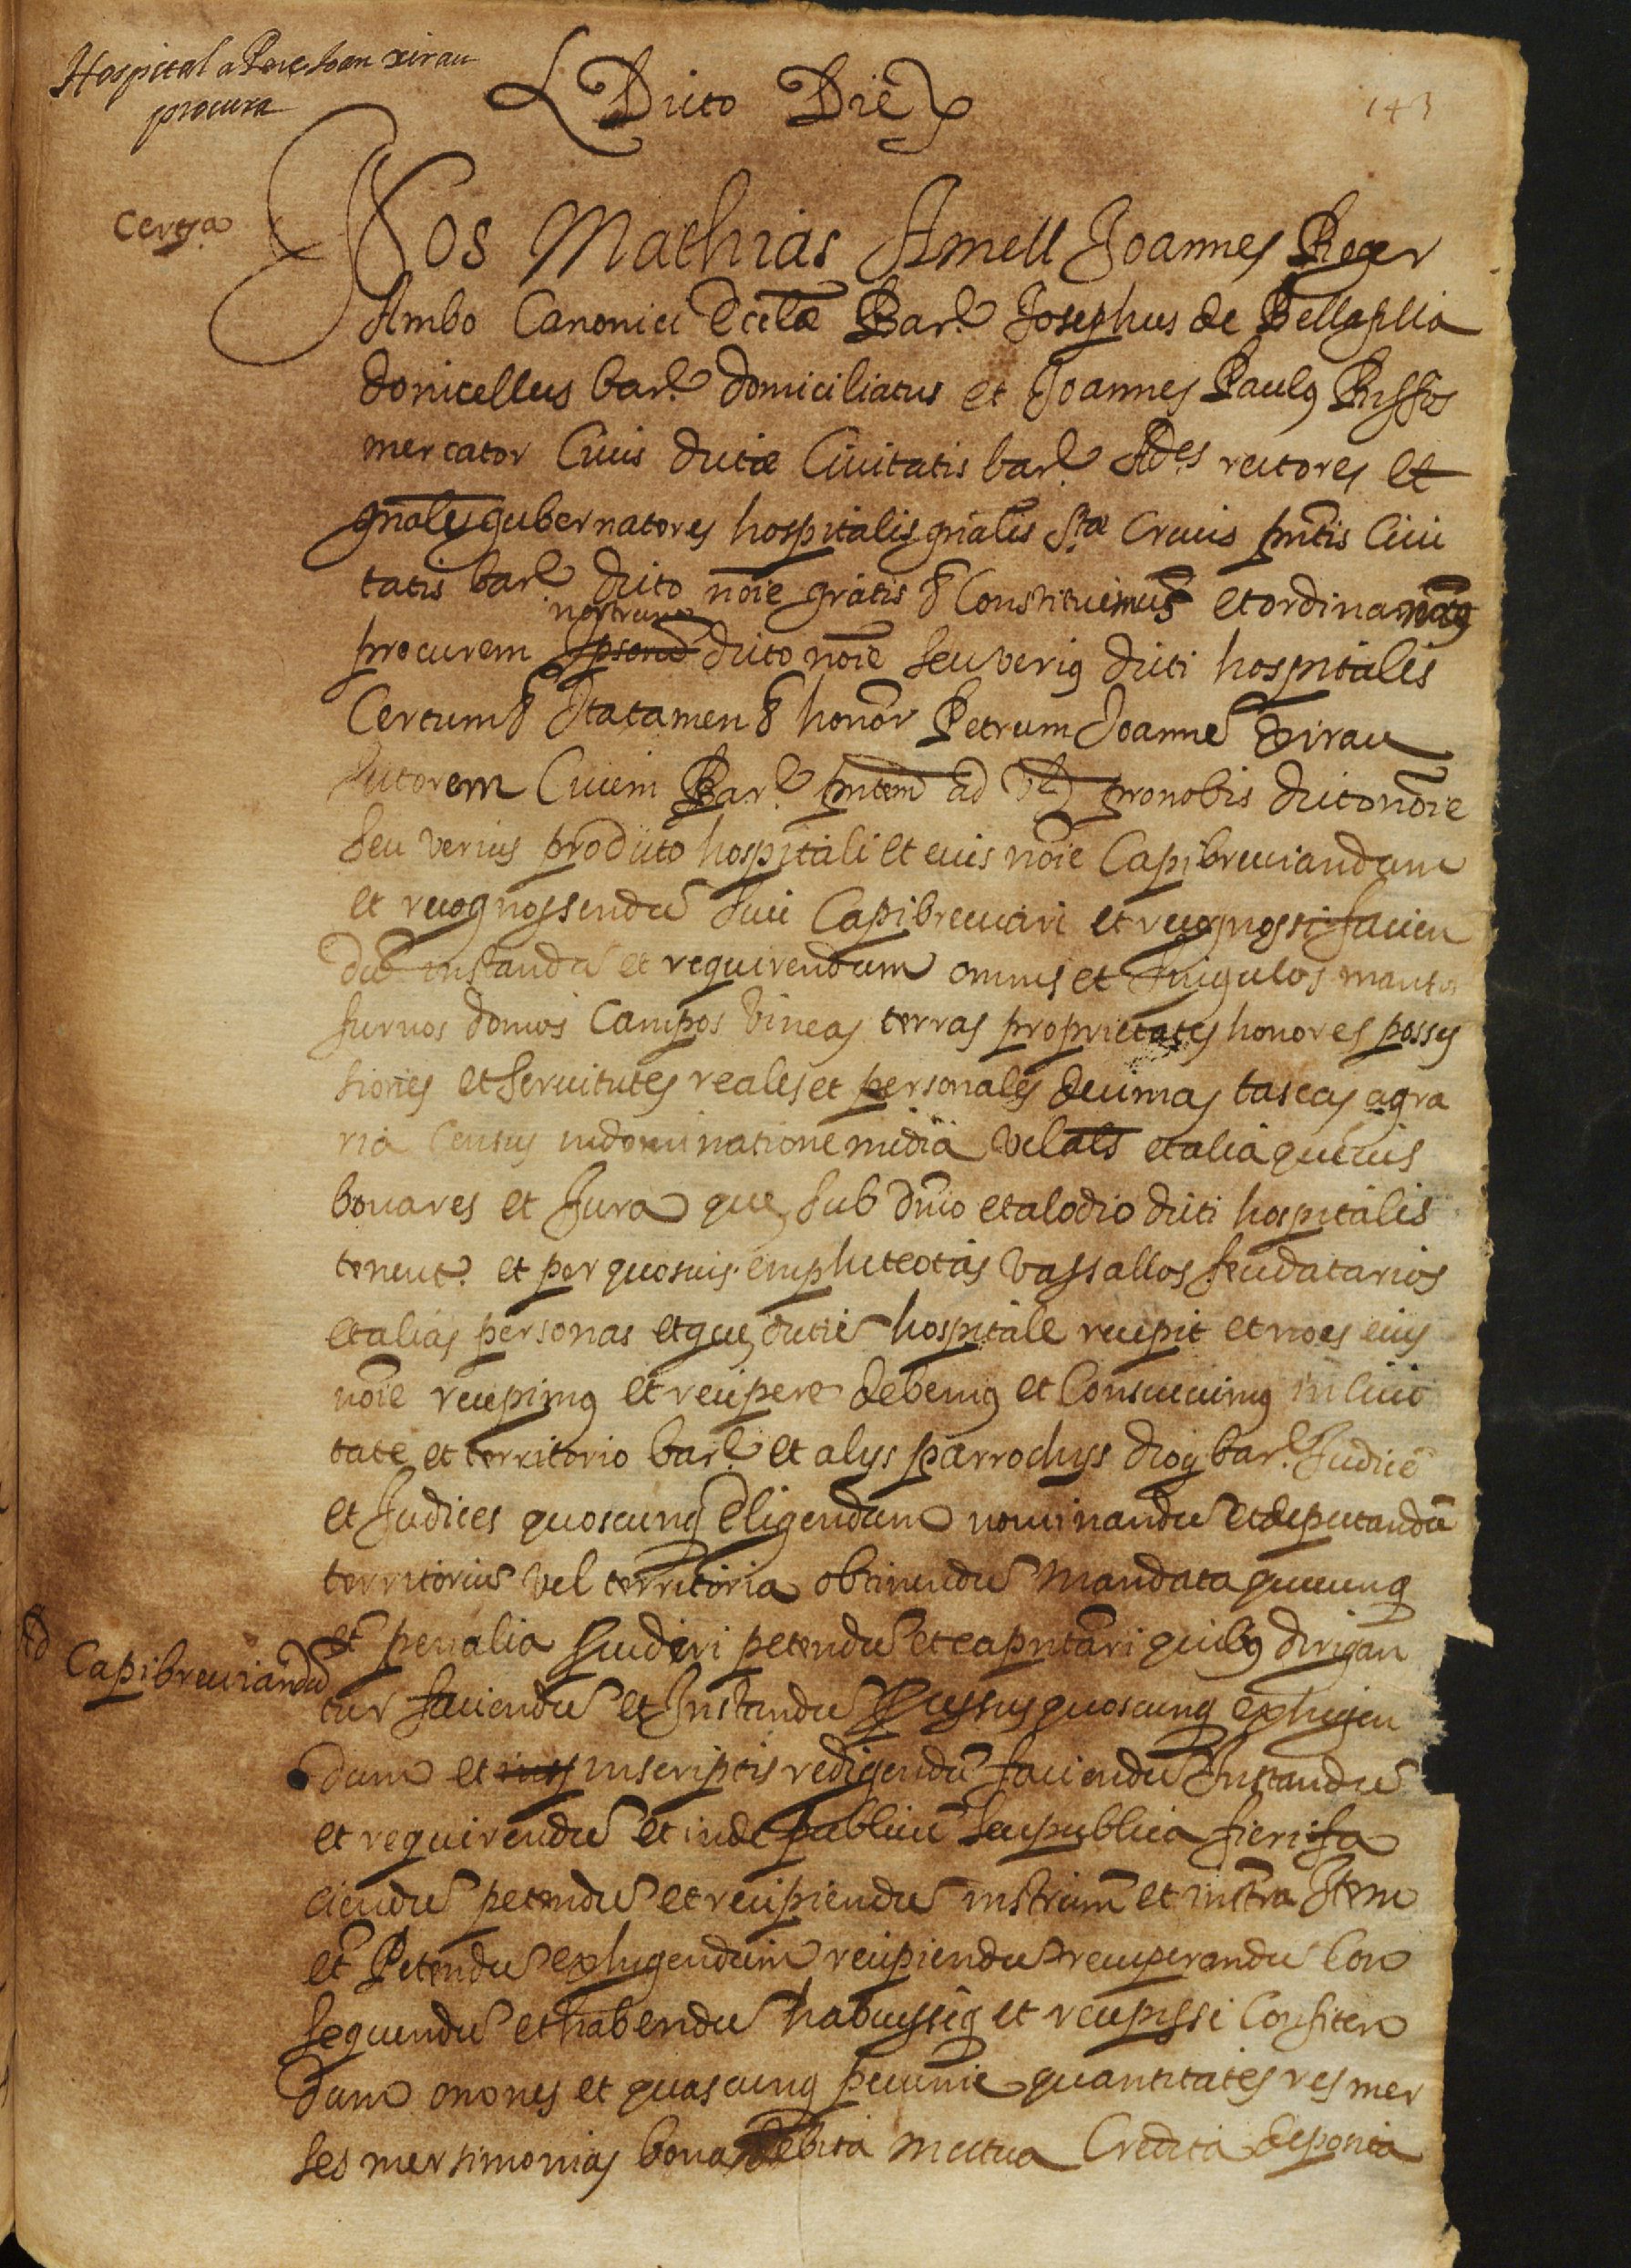 Hospital a Pere Joan xirau
procura
Dicto Die
143
Certa
Nos Mathias Amell Joannes Roger
Ambo Canonici Ecclæ Bar.e Josephus de Bellafilla
donicellus bar.e domiciliatus et Joannes Paulus
mercator Civis dictæ Civitatis bar.e Ad.es rectores et
gnales gubernatores hospitalis gnalis S.tæ Crucis pntis Civi
tatis bar.e dicto noie gratis & Constituimus et ordinamus
nostrum
procurem ipsorũ dicto noie seu verius dicti hospitalis
Certum & Ita tamen & honor Petrum Joannẽ Xirau
Civem Bar.e pntem ad pro nobis dicto noie
seu verius pro dicto hospitali et eius noie Capibreviandum
et recognossendũ sive Capibreviari et recognossi facien
dũ instandũ et requirendum omnes et singulos mansos
furnos domos Campos vineas terras proprietates honores posses
siones et servitutes reales et personales decimas tascas agra
ria Census in dominatione midia vel als et alia quevis
bona res et Jura que sub dnio et alodio dicti hospitalis
tenent.r et per quosvis emphiteotas vassallos feudatarios
et alias personas et que dictũ hospitale recipit et nos eius
noie recipimus et recipere debemus et Consuevimus in civi
tate et territorio bar.e et alys parrochys diog bar.e Judicẽ
et Judices quoscunq Eligendum nominandũ et deputandũ
territoriũ vel territoria obtinendũ Mandata quecunq
Ad Capibreviandũ
et penalia petendũ et ea pntari quibus dirigan
tur faciendũ et Instandũ quoscunq exhigen
dum et in scriptis redigendũ faciendũ Instandũ
et requirendũ et inde publicũ seu publica fieri fa
ciendũ petendũ et recipiendũ instrum et instra Item
et Petendũ exhigendum recipiendũ recuperandũ Con
sequendũ et habendũ habuisseq et recepissi Confiten
dum omnes et quascunq pecunie quantitates res mer
ses mersimonias bona debita mutua Credita deposita